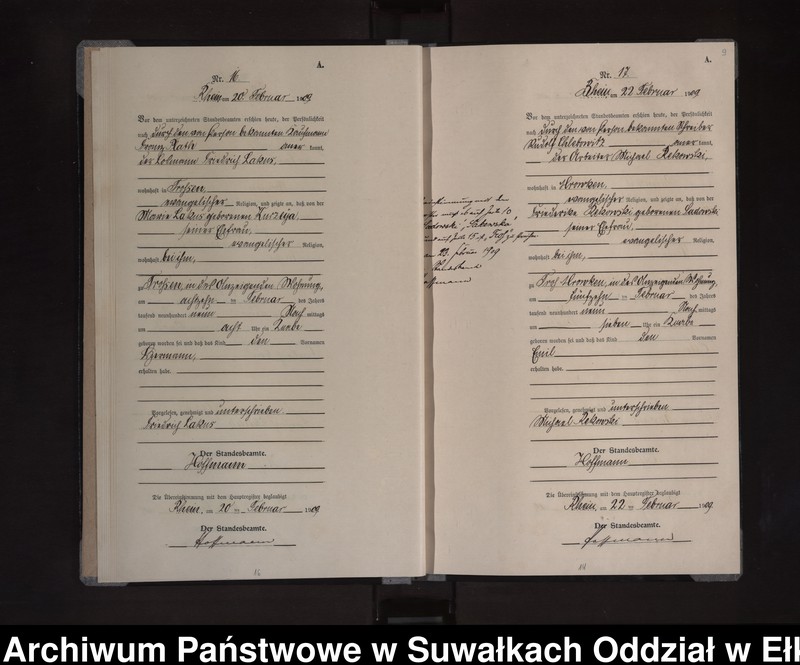 A.
Nr. 16.
Rhein, am 20. Februar 1909
Vor dem unterzeichneten Standesbeamten erschien heute, der Persönlichkeit
nach durch den von Person bekannten Kaufmann
Franz Rath anerkannt,
der Kolmann Friedrich Lakus,
wohnhaft in
evangelischer Religion, und zeigte an, daß von der
Marie Lakus geborenen
seiner Ehefrau,
evangelischer Religion,
wohnhaft bei ihm,
zu in des Anzeigenden Wohnung,
am achtzehn ten Februar des Jahres
tausend neunhundert neun Nachmittags
um acht Uhr ein Knabe
geboren worden sei und daß das Kind den Vornamen
Hermann,
erhalten habe.
Vorgelesen, genehmigt und unterschrieben
Friedrich Lakus
Der Standesbeamte.
Hoffmann
Die Übereinstimmung mit dem Hauptregister beglaubigt
Rhein, am 20 ten Februar 1909
Der Standesbeamte.
Hoffmann
16
9
A.
Nr. 17.
Rhein, am 22 Februar 1909
Vor dem unterzeichneten Standesbeamten erschien heute, der Persönlichkeit
nach durch den von Person bekannten Schreiber
Rudolf Chlebowitz anerkannt,
der Arbeiter Michael Rekowski,
wohnhaft in Hrowken,
evangelischer Religion, und zeigte an, daß von der
Friederike Rekowski geborenen Sadowski
seiner Ehefrau,
evangelischer Religion,
wohnhaft bei ihm,
zu Dorf Hrowken, in des Anzeigenden Wohnung,
am fünfzehn ten Februar des Jahres
tausend neunhundert neun Nachmittags
um sieben Uhr ein Knabe
geboren worden sei und daß das Kind den Vornamen
Emil
erhalten habe.
Vorgelesen, genehmigt und unterschrieben
Michael Rekowski
Der Standesbeamte.
Hoffmann
Die Übereinstimmung mit dem Hauptregister beglaubigt
Rhein, am 22 ten Februar 1909
Der Standesbeamte.
Hoffmann
Archiwum Państwowe w Suwałkach Oddział w Ełk